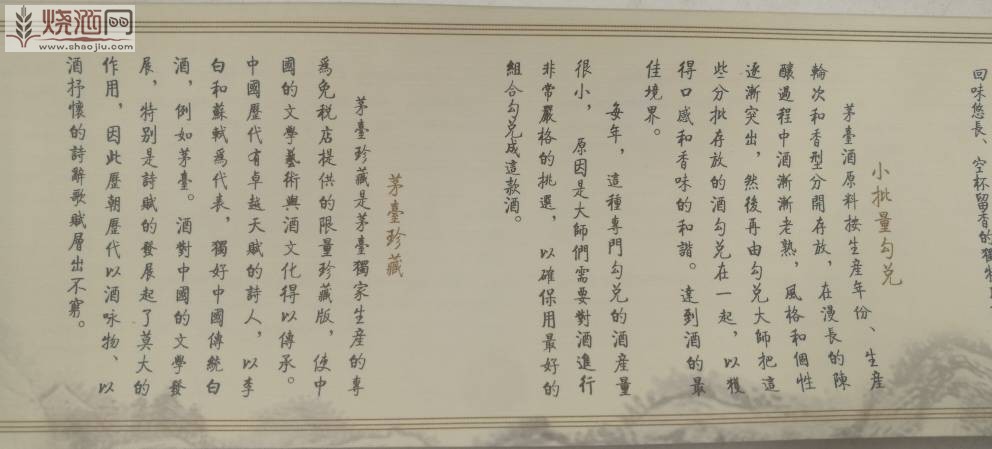 烧酒网
www.shaojiu.com
回味悠長、空杯留香的獨特
小批量勾兑
茅臺酒原料按生産年份、生産
輪次和香型分開存放，在漫長的陳
釀過程中酒漸漸老熟，風格和個性
逐漸突出，然後再由勾兑大師把這
些分批存放的酒勾兑在一起，以獲
得口感和香味的和諧。達到酒的最
佳境界。
每年，這種專門勾兑的酒産量
很小，原因是大師們需要對酒進行
非常嚴格的挑選，以確保用最好的
組合勾兑成這款酒。
茅臺珍藏
茅臺珍藏是茅臺獨家生産的專
爲免税店提供的限量珍藏版，使中
國的文學藝術與酒文化得以傳承。
中國歷代有卓越天賦的詩人，以李
白和蘇軾爲代表，獨好中國傳統白
酒，例如茅臺。酒對中國的文學發
展，特别是詩賦的發展起了莫大的
作用，因此歷朝歷代以酒咏物、以
酒抒懷的詩辭歌賦層出不窮。